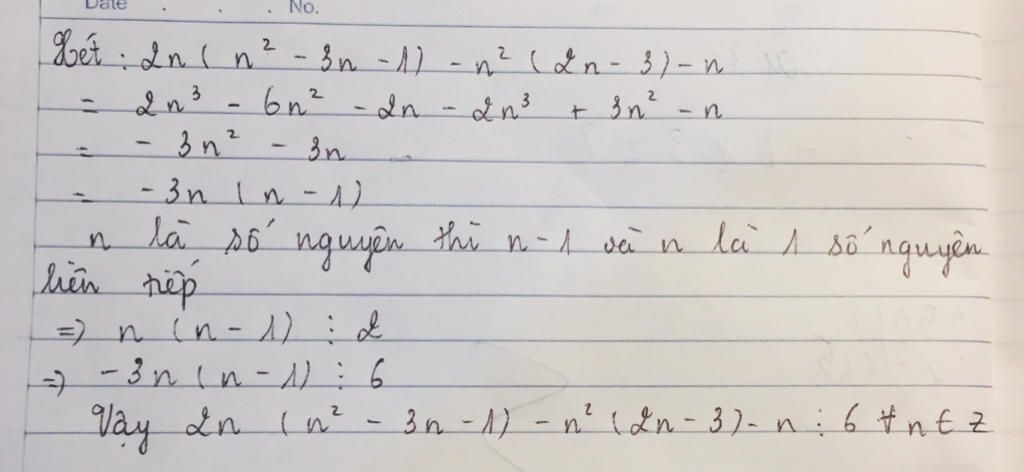 Date . . . No.
Xét : 2n ( n² - 3n - 1) - n² ( 2n - 3) - n
= 2n³ - 6n² - 2n - 2n³ + 3n² - n
= - 3n² - 3n
= - 3n ( n - 1)
n là số nguyên thì n - 1 và n là 1 số nguyên
liên tiếp
=) n ( n - 1) ⋮ 2
=) - 3n ( n - 1) ⋮ 6
Vậy 2n ( n² - 3n - 1) - n² ( 2n - 3) - n ⋮ 6 ∀ n ∈ Z